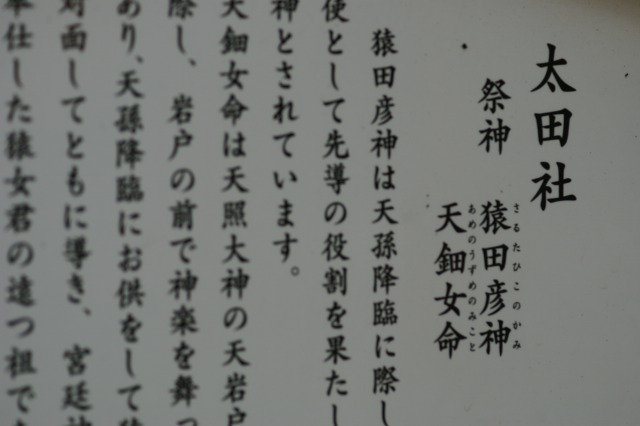 太田社
祭神
猿田彦神
さるたひこのかみ
天鈿女命
あめのうずめのみこと
猿田彦神は天孫降臨に際し
使として先導の役割を果たし
神とされています。
天鈿女命は天照大神の天岩戸
際し、岩戸の前で神楽を舞っ
あり、天孫降臨にお供をして
対面してともに導き、宮廷
奉仕した猿女君の遠つ祖で